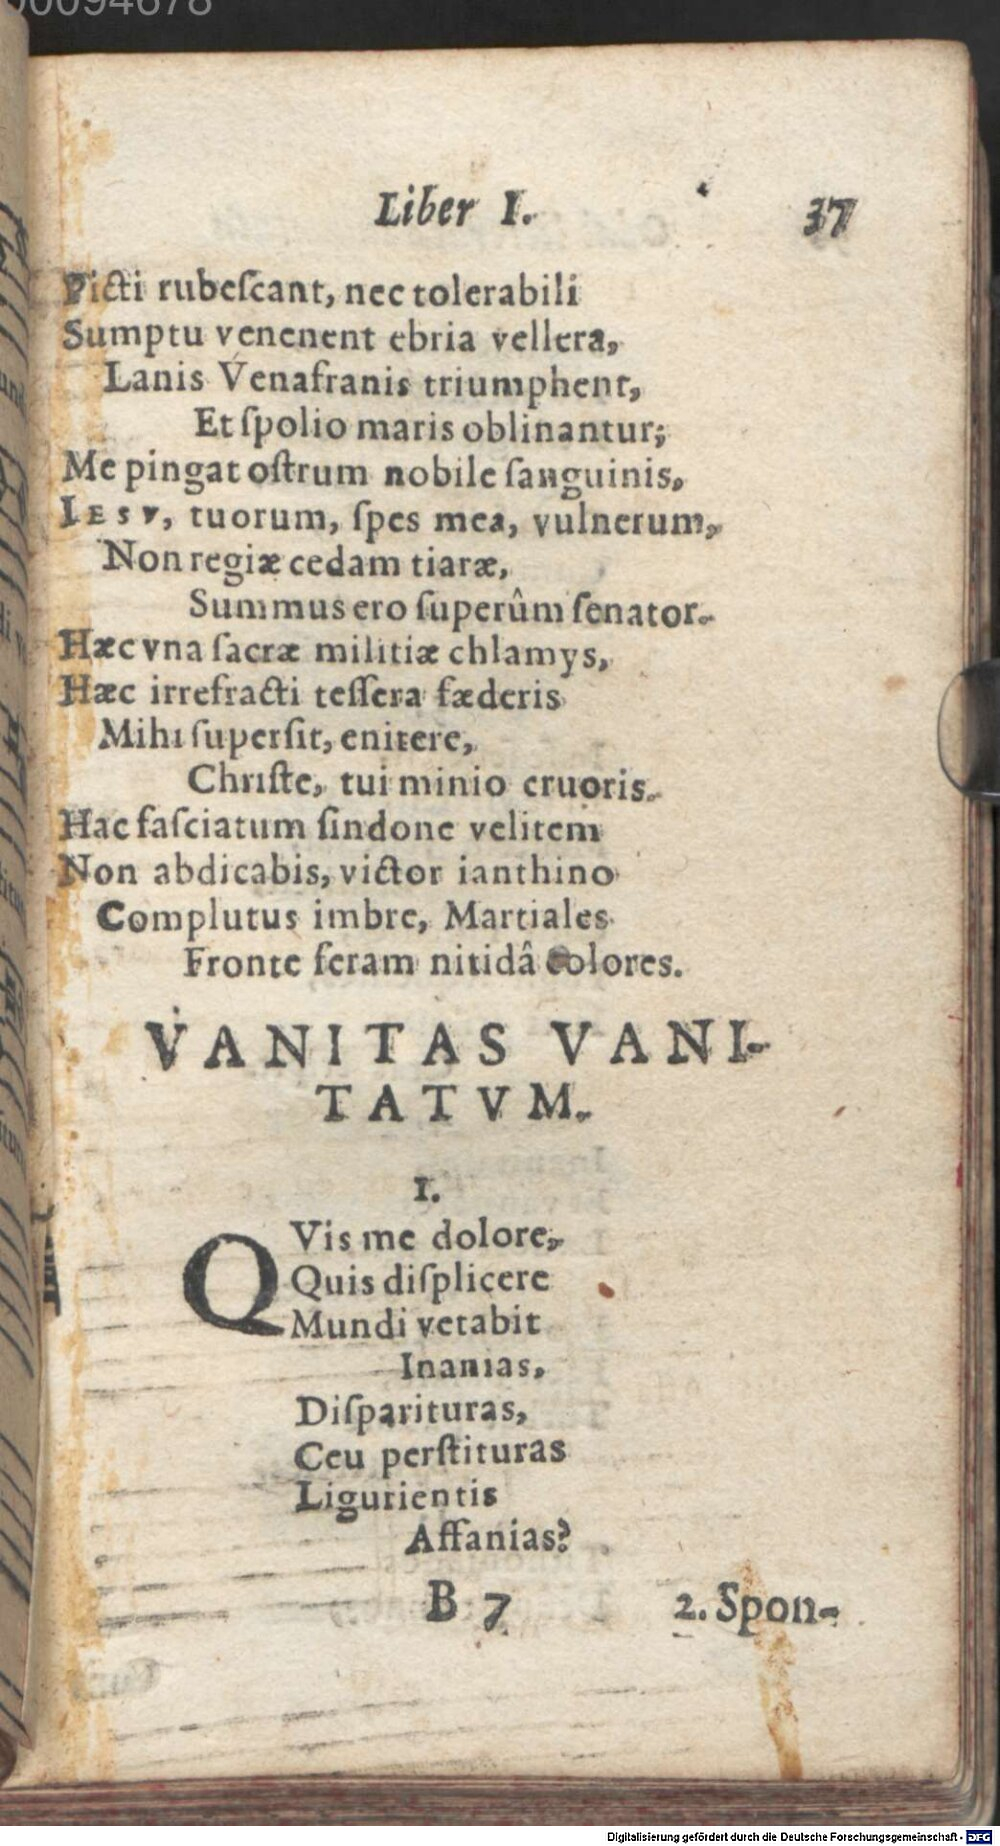 00094678
Liber I. 37
Picti rubeſcant, nec tolerabili
Sumptu venenent ebria vellera,
Lanis Venafranis triumphent,
Et ſpolio maris oblinantur;
Me pingat oſtrum nobile ſanguinis,
IESV, tuorum, ſpes mea, vulnerum,
Non regiæ cedam tiaræ,
Summus ero ſuperûm ſenator.
Hæc vna ſacræ militiæ chlamys,
Hæc irrefracti teſſera fæderis
Mihi ſuperſit, enitere,
Chriſte, tui minio cruoris.
Hac faſciatum ſindone velitem
Non abdicabis, victor ianthino
Complutus imbre, Martiales
Fronte feram nitidâ colores.
VANITAS VANI-
TATVM.
1.
QVis me dolore,
Quis diſplicere
Mundi vetabit
Inanias,
Diſparituras,
Ceu perſtituras
Ligurientis
Affanias?
B 7 2. Spon-
Digitalisierung gefördert durch die Deutsche Forschungsgemeinschaft - DFG